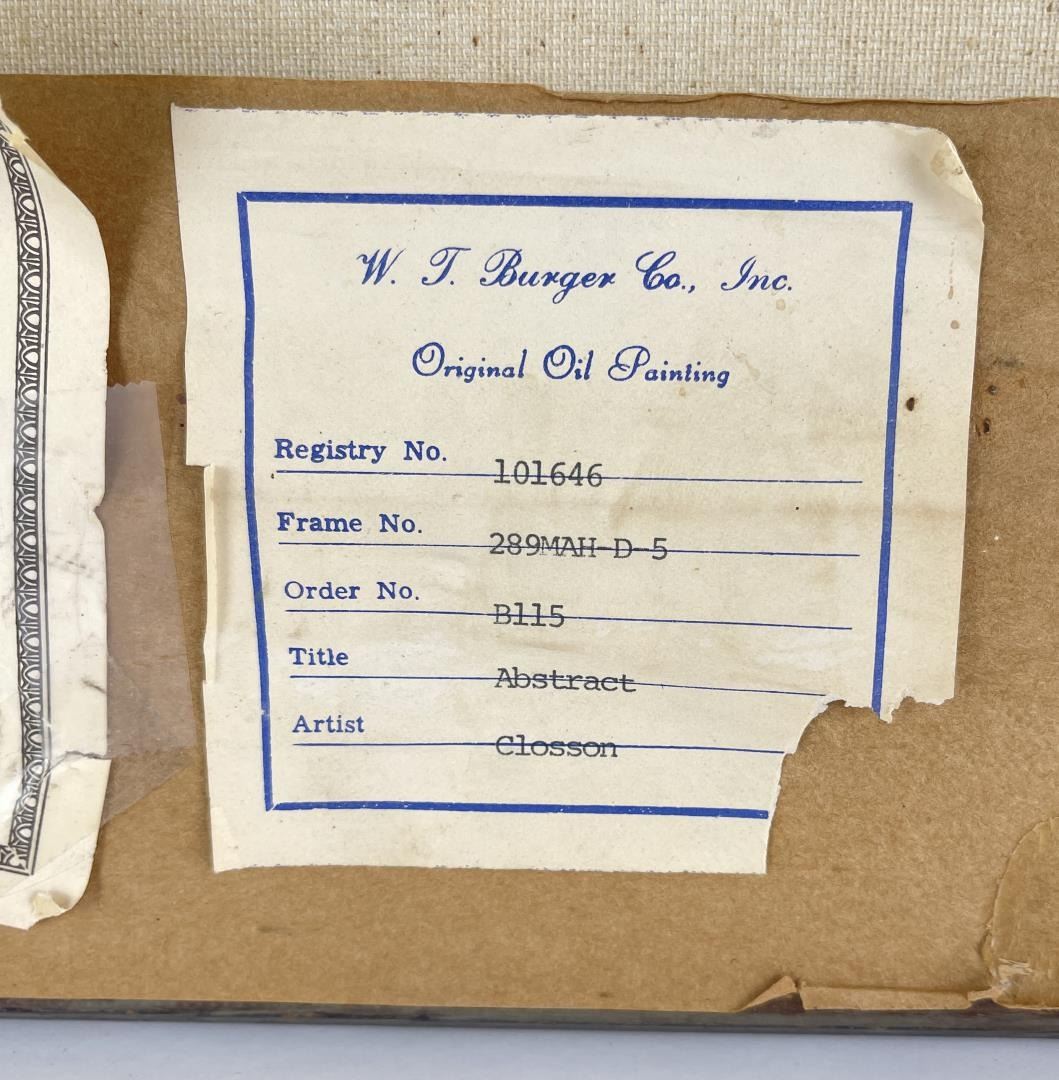 W. T. Burger Co., Inc.
Original Oil Painting
Registry No. 101646
Frame No. 289MAH-D-5
Order No. B115
Title Abstract
Artist Closson